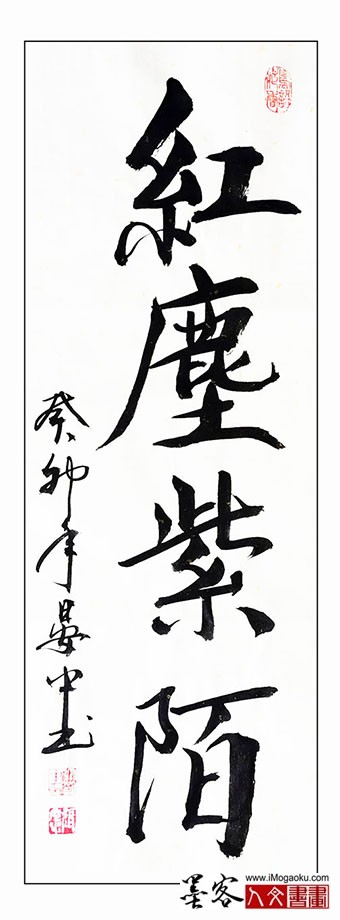 紅塵紫陌
癸卯年晏中书
www.iMogaoku.com
墨客
人文書畫